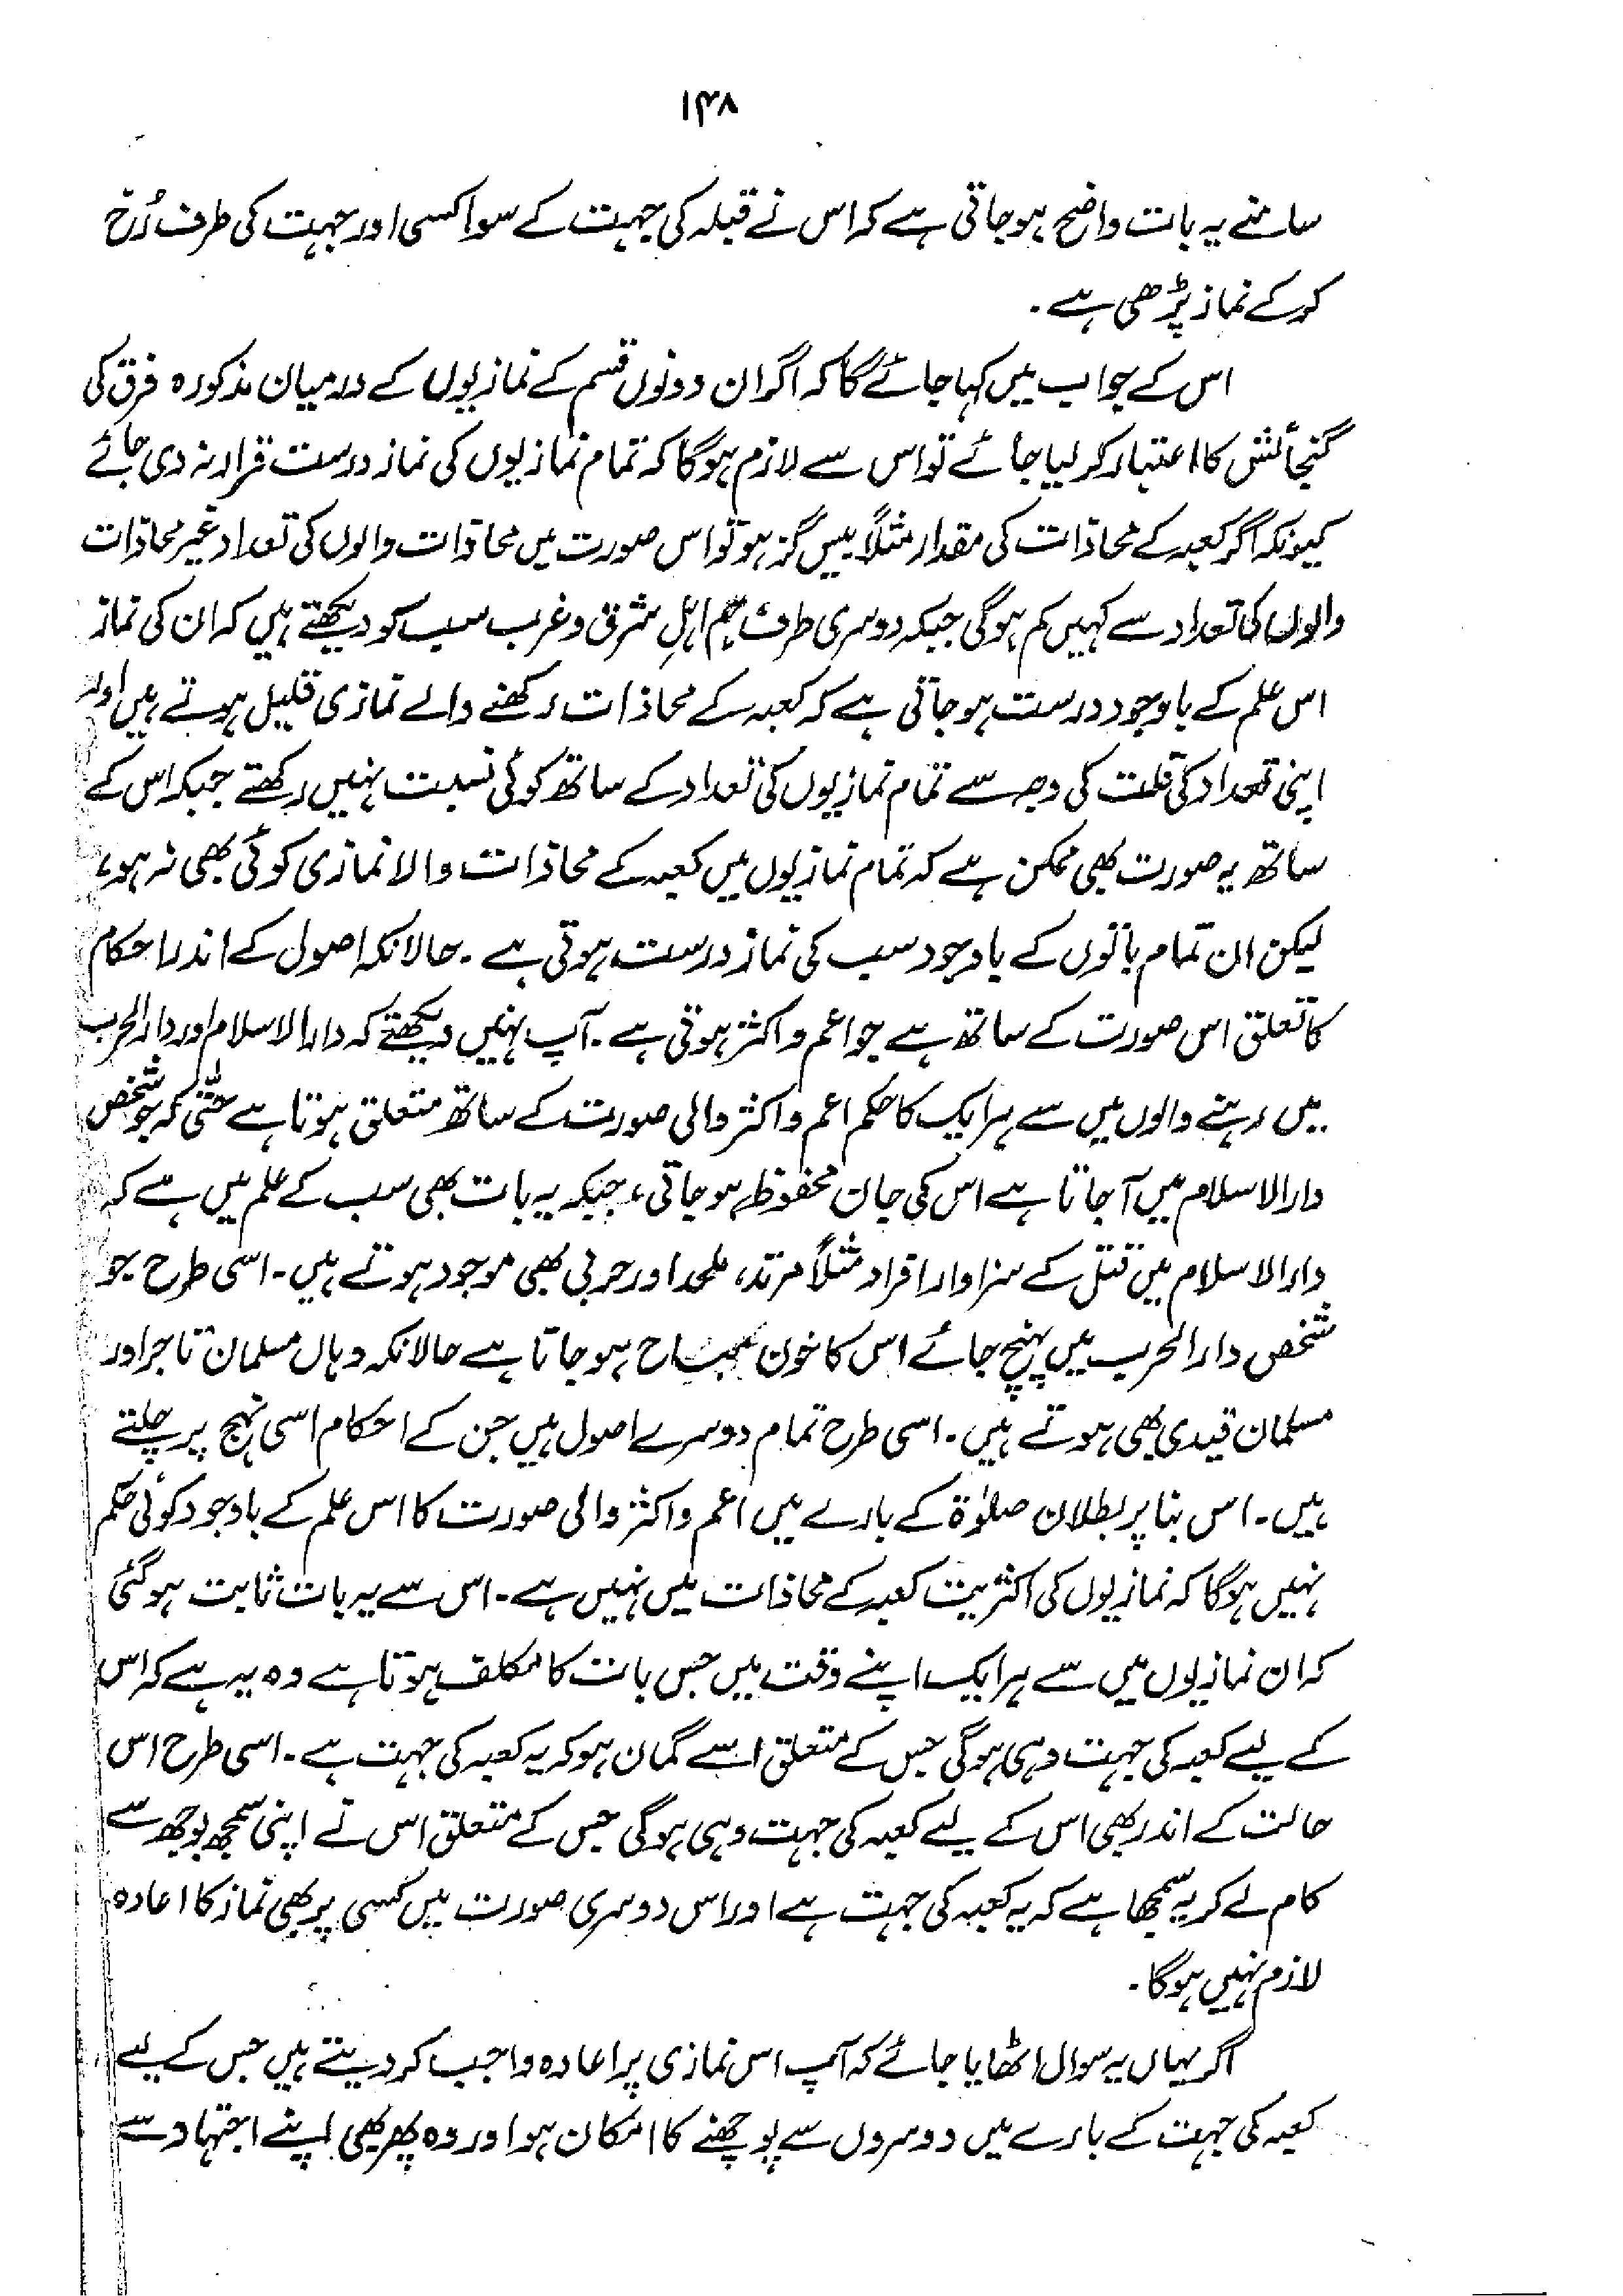 ۱۴۸
سامنے یہ بات واضح ہوجاتی ہے کہ اس نے قبلہ کی جہت کے سوا کسی اور جہت کی طرف رُخ
کرکے نماز پڑھی ہے۔
اس کے جواب میں کہا جائے گا کہ اگر ان دونوں قسم کے نمازیوں کے درمیان مذکورہ فرق کی
گنجائش کا اعتبار کر لیا جائے تو اس سے لازم ہوگا کہ تمام نمازیوں کی نماز درست قرار نہ دی جائے
کیونکہ اگر کعبہ کے محاذات کی مقدار مثلاً بیس گز ہو تو اس صورت میں محاذات والوں کی تعداد غیر محاذات
والوں کی تعداد سے کہیں کم ہوگی جبکہ دوسری طرف ہم اہلِ شرق و غرب سب کو دیکھتے ہیں کہ ان کی نماز
اس علم کے باوجود درست ہوجاتی ہے کہ کعبہ کے محاذات رکھنے والے نمازی قلیل ہوتے ہیں اور
اپنی تعداد کی قلت کی وجہ سے تمام نمازیوں کی تعداد کے ساتھ کوئی نسبت نہیں رکھتے جبکہ اس کے
ساتھ یہ صورت بھی ممکن ہے کہ تمام نمازیوں میں کعبہ کے محاذات والا نمازی کوئی بھی نہ ہو،
لیکن ان تمام باتوں کے باوجود سب کی نماز درست ہوتی ہے۔ حالانکہ اصول کے اندر احکام
کا تعلق اس صورت کے ساتھ ہے جو اعم و اکثر ہوتی ہے۔ آپ نہیں دیکھتے کہ دارالاسلام اور دارالحرب
میں رہنے والوں میں سے ہر ایک کا حکم اعم و اکثر والی صورت کے ساتھ متعلق ہوتا ہے حتّٰی کہ جو شخص
دارالاسلام میں آجاتا ہے اس کی جان محفوظ ہوجاتی، جبکہ یہ بات بھی سب کے علم میں ہے کہ
دارالاسلام میں قتل کے سزاوار افراد مثلاً مرتد، ملحد اور حربی بھی موجود ہوتے ہیں۔ اسی طرح جو
شخص دارالحرب میں پہنچ جائے اس کا خون مباح ہوجاتا ہے حالانکہ وہاں مسلمان تاجر اور
مسلمان قیدی بھی ہوتے ہیں۔ اسی طرح تمام دوسرے اصول ہیں جن کے احکام اسی نہج پر چلتے
ہیں۔ اس بنا پر بطلان صلوٰۃ کے بارے میں اعم و اکثر والی صورت کا اس علم کے باوجود کوئی حکم
نہیں ہوگا کہ نمازیوں کی اکثریت کعبہ کے محاذات میں نہیں ہے۔ اس سے یہ بات ثابت ہوگئی
کہ ان نمازیوں میں سے ہر ایک اپنے وقت میں جس بات کا مکلف ہوتا ہے وہ یہ ہے کہ اس
کے لیے کعبہ کی جہت وہی ہوگی جس کے متعلق اسے گمان ہو کہ یہ کعبہ کی جہت ہے۔ اسی طرح اس
حالت کے اندر بھی اس کے لیے کعبہ کی جہت وہی ہوگی جس کے متعلق اس نے اپنی سمجھ بوجھ سے
کام لے کر یہ سمجھا ہے کہ یہ کعبہ کی جہت ہے اور اس دوسری صورت میں کسی پر بھی نماز کا اعادہ
لازم نہیں ہوگا۔
اگر یہاں یہ سوال اٹھایا جائے کہ آپ اس نمازی پر اعادہ واجب کر دیتے ہیں جس کے لیے
کعبہ کی جہت کے بارے میں دوسروں سے پوچھنے کا امکان ہو اور وہ پھر بھی اپنے اجتہاد سے